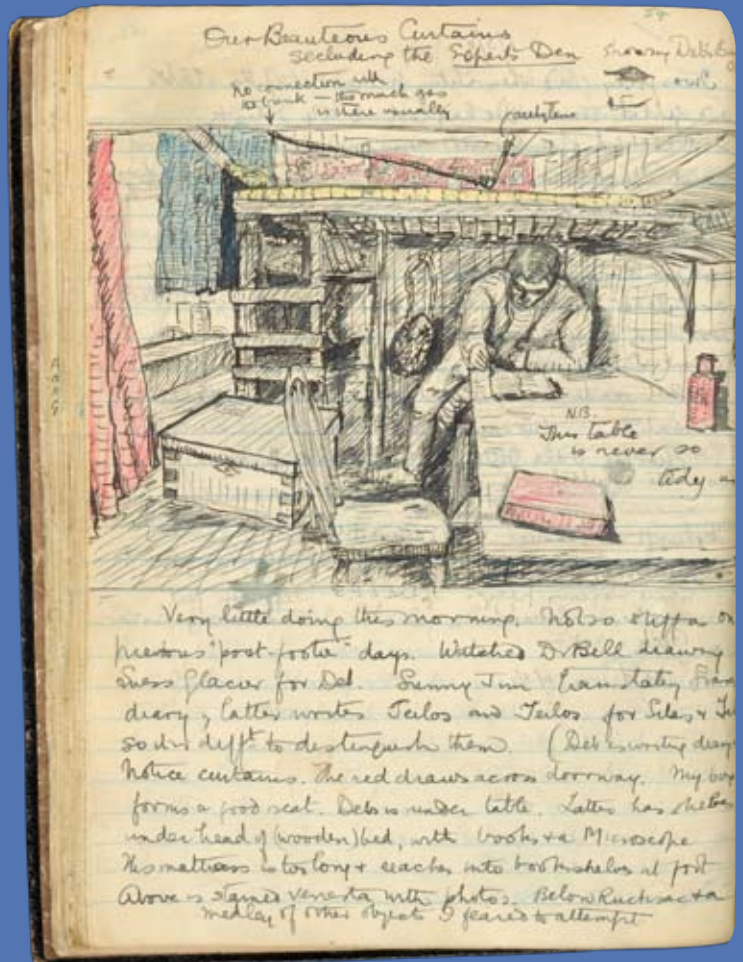 Our Beauteous Curtains
secluding the Experts Den
Showing Debs
No connection with
bunk — too much gas
is there usually
acetylene
N.B.
This table
is never so
tidy as
Very little doing this morning. Not so stiff as on
previous "post-footer" days. Watched D. Bell drawing
Suess Glacier for Deb. Sunny Jim translating
diary, latter writes Teilos and Teilos for Silas &
so it is diffᵗ to distinguish them. (Deb is writing diary
Notice curtains. The red draws across doorway. My box
forms a good seat. Debs is under table. Latter has shelves
under head of (wooden) bed, with books & a Microscope
His mattress is too long & reaches into bookshelves at foot
Above is stained venesta with photos. Below Rucksac & a
medley of other objects I feared to attempt